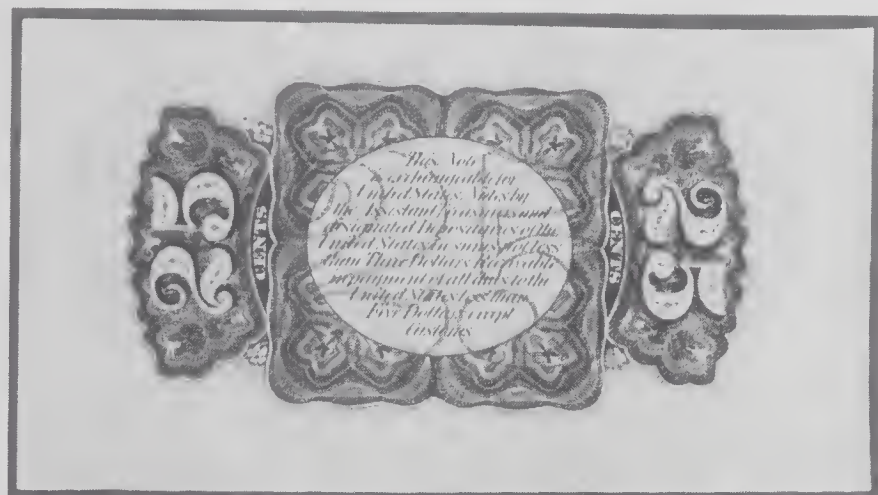 This Note
is exchangeable for
United States Notes by
the Assistant Treasurers and
designated Depositaries of the
United States in sums not less
than Three Dollars. Receivable
in payment of all dues to the
United States less than
Five Dollars except
Customs.
25
CENTS
CENTS
25